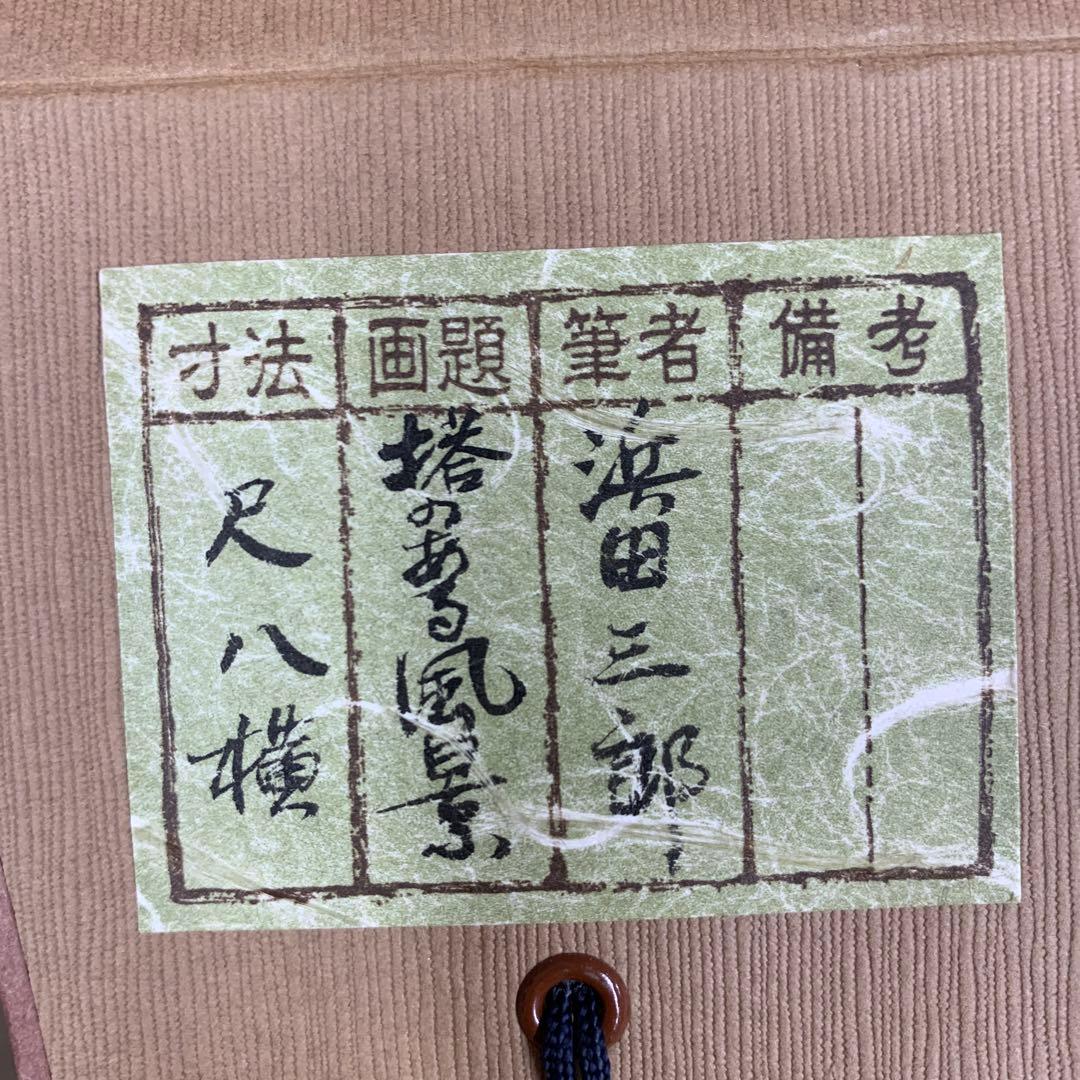 備考
筆者
浜田三郎
画題
塔のある風景
寸法
尺八横